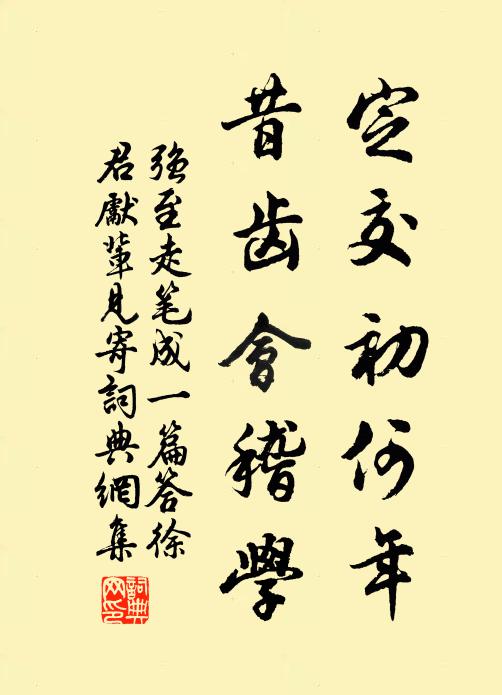 定交初何年
昔齿會稽學
強至走笔成一篇答徐
君獻輩見寄詞典網集